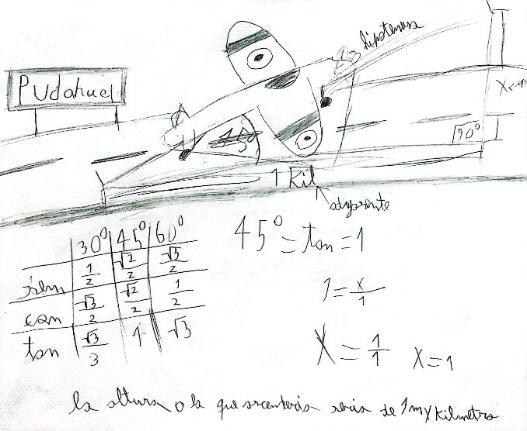 Pudahuel
hipotenusa
X
90°
45
1 Kil
adyacente
30° 45° 60°
sen 1/2 √2/2 √3/2
cos √3/2 √2/2 1/2
tan √3/3 1 √3
45° = tan = 1
1 = x/1
X = 1/1 X = 1
la altura a la que ascenderia seria de 1 kilometro